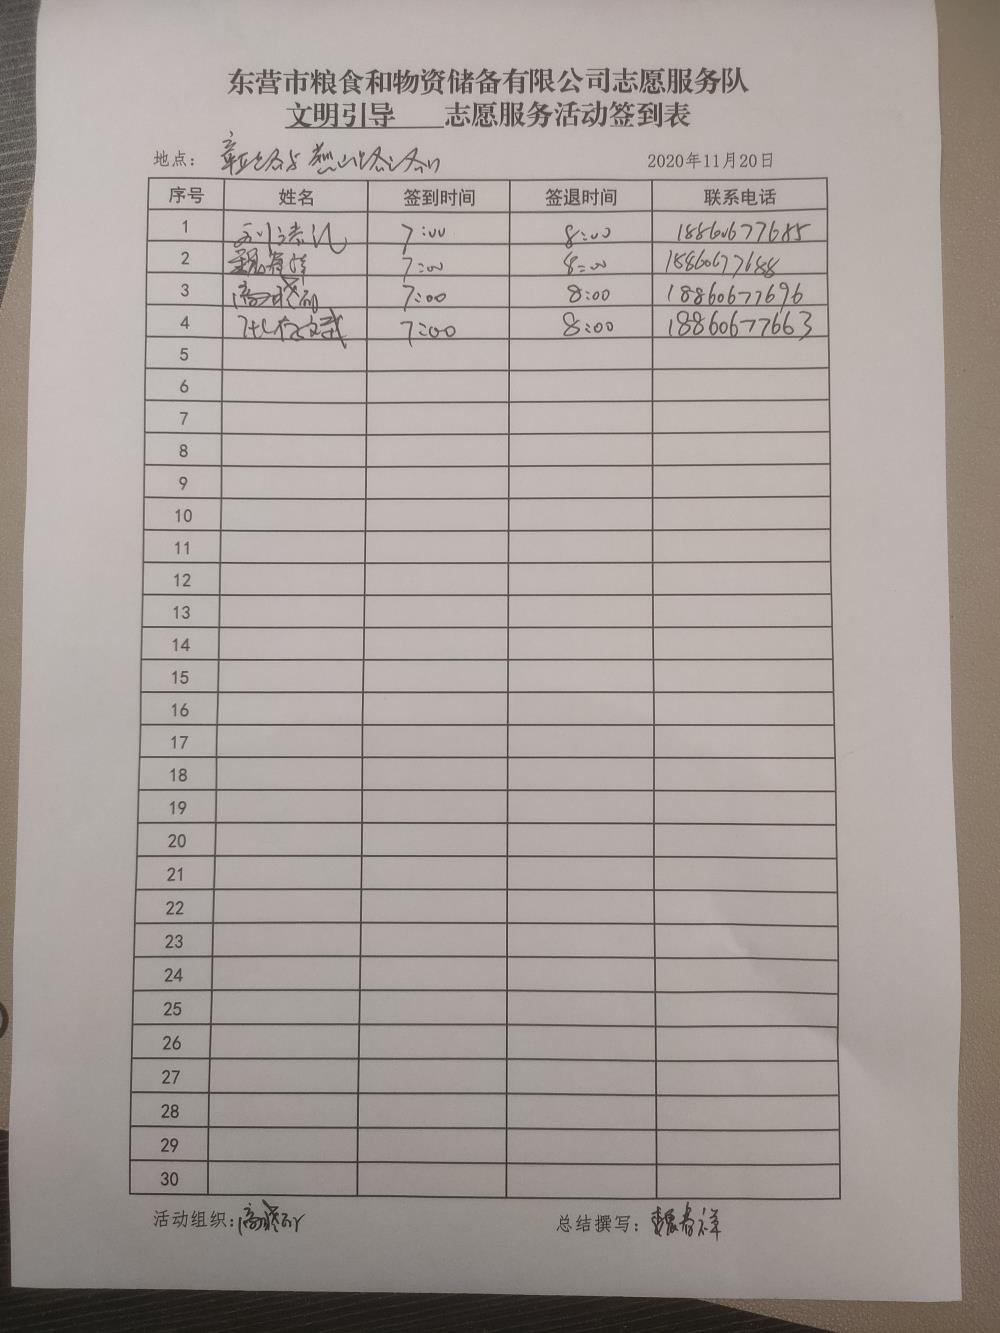 东营市粮食和物资储备有限公司志愿服务队
文明引导 志愿服务活动签到表
地点： 路与 山路路口 2020年11月20日
序号 姓名 签到时间 签退时间 联系电话
1 7:00 8:00 18860677685
2 7:00 8:00 18860677688
3 7:00 8:00 18860677696
4 7:00 8:00 18860677663
5
6
7
8
9
10
11
12
13
14
15
16
17
18
19
20
21
22
23
24
25
26
27
28
29
30
活动组织： 总结撰写：魏春祥